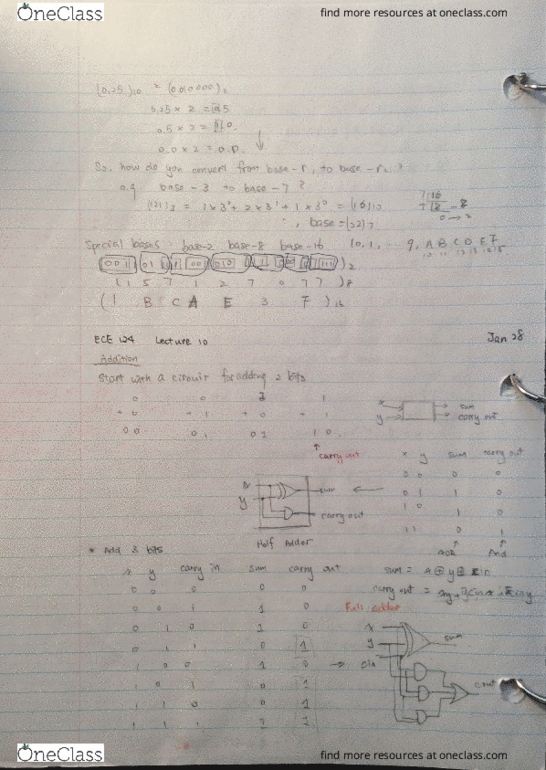 OneClass
find more resources at oneclass.com
(0.25)10 = (0.010000)2
0.25 × 2 = 0.5
0.5 × 2 = 1.0
0.0 × 2 = 0.0
So, how do you convert from base-r1 to base-r2?
base-3 to base-7?
(121)3 = 1×3² + 2×3¹ + 1×3⁰ = (16)10
base (22)7
Special bases: base-2 base-8 base-16 (0, 1, ... 9, A B C D E F
10 11 12 13 14 15
(1 5 7 1 2 7 0 7 7)8
(1 B C A E 3 F)16
ECE 124 Lecture 10 Jan 28
Addition
Start with a circuit for adding 2 bits
0 0 1 1
+0 +1 +0 +1
00 01 01 10
carry out
sum
carry out
x y sum carry out
0 0 0 0
0 1 1 0
1 0 1 0
1 1 0 1
XOR And
x
y
sum
carry out
Half Adder
* Add 3 bits
x y carry in sum carry out
0 0 0 0 0
0 0 1 1 0
0 1 0 1 0
0 1 1 0 1
1 0 0 1 0
1 0 1 0 1
1 1 0 0 1
1 1 1 1 1
carry out =
Full adder
x
y
Cin
sum
Cout
OneClass
find more resources at oneclass.com